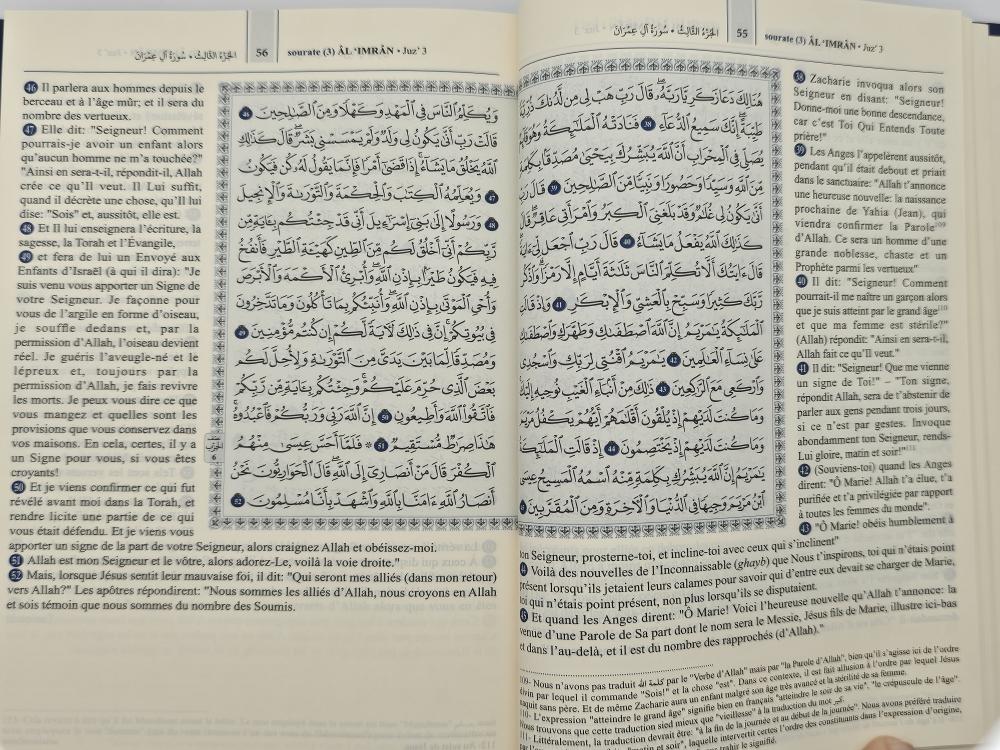 55
sourate (3) ÂL 'IMRÂN • Juz' 3
الجُزْءُ الثَّالِثُ • سُورَةُ آلِ عِمْرَانَ
هُنَالِكَ دَعَا زَكَرِيَّا رَبَّهُۥ قَالَ رَبِّ هَبْ لِى مِن لَّدُنكَ ذُرِّيَّةً
طَيِّبَةً إِنَّكَ سَمِيعُ ٱلدُّعَآءِ 38 فَنَادَتْهُ ٱلْمَلَٰٓئِكَةُ وَهُوَ قَآئِمٌ
يُصَلِّى فِى ٱلْمِحْرَابِ أَنَّ ٱللَّهَ يُبَشِّرُكَ بِيَحْيَىٰ مُصَدِّقًۢا بِكَلِمَةٍ
مِّنَ ٱللَّهِ وَسَيِّدًا وَحَصُورًا وَنَبِيًّا مِّنَ ٱلصَّٰلِحِينَ 39 قَالَ رَبِّ
أَنَّىٰ يَكُونُ لِى غُلَٰمٌ وَقَدْ بَلَغَنِىَ ٱلْكِبَرُ وَٱمْرَأَتِى عَاقِرٌ قَالَ
كَذَٰلِكَ ٱللَّهُ يَفْعَلُ مَا يَشَآءُ 40 قَالَ رَبِّ ٱجْعَل لِّىٓ ءَايَةً
قَالَ ءَايَتُكَ أَلَّا تُكَلِّمَ ٱلنَّاسَ ثَلَٰثَةَ أَيَّامٍ إِلَّا رَمْزًا وَٱذْكُر
رَّبَّكَ كَثِيرًا وَسَبِّحْ بِٱلْعَشِىِّ وَٱلْإِبْكَٰرِ 41 وَإِذْ قَالَتِ
ٱلْمَلَٰٓئِكَةُ يَٰمَرْيَمُ إِنَّ ٱللَّهَ ٱصْطَفَىٰكِ وَطَهَّرَكِ وَٱصْطَفَىٰكِ
عَلَىٰ نِسَآءِ ٱلْعَٰلَمِينَ 42 يَٰمَرْيَمُ ٱقْنُتِى لِرَبِّكِ وَٱسْجُدِى
وَٱرْكَعِى مَعَ ٱلرَّٰكِعِينَ 43 ذَٰلِكَ مِنْ أَنۢبَآءِ ٱلْغَيْبِ نُوحِيهِ إِلَيْكَ
وَمَا كُنتَ لَدَيْهِمْ إِذْ يُلْقُونَ أَقْلَٰمَهُمْ أَيُّهُمْ يَكْفُلُ مَرْيَمَ
وَمَا كُنتَ لَدَيْهِمْ إِذْ يَخْتَصِمُونَ 44 إِذْ قَالَتِ ٱلْمَلَٰٓئِكَةُ
يَٰمَرْيَمُ إِنَّ ٱللَّهَ يُبَشِّرُكِ بِكَلِمَةٍ مِّنْهُ ٱسْمُهُ ٱلْمَسِيحُ عِيسَى
ٱبْنُ مَرْيَمَ وَجِيهًا فِى ٱلدُّنْيَا وَٱلْءَاخِرَةِ وَمِنَ ٱلْمُقَرَّبِينَ
38 Zacharie invoqua alors son
Seigneur en disant: "Seigneur!
Donne-moi une bonne descendance,
car c'est Toi Qui Entends Toute
prière!"
39 Les Anges l'appelèrent aussitôt,
pendant qu'il était debout et priait
dans le sanctuaire: "Allah t'annonce
une heureuse nouvelle: la naissance
prochaine de Yahia (Jean), qui
viendra confirmer la Parole109
d'Allah. Ce sera un homme d'une
grande noblesse, chaste et un
Prophète parmi les vertueux"
40 Il dit: "Seigneur! Comment
pourrait-il me naître un garçon alors
que je suis atteint par le grand âge110
et que ma femme est stérile?"
(Allah) répondit: "Ainsi en sera-t-il,
Allah fait ce qu'Il veut."
41 Il dit: "Seigneur! Que me vienne
un signe de Toi!" – "Ton signe,
répondit Allah, sera de t'abstenir de
parler aux gens pendant trois jours,
si ce n'est par gestes. Invoque
abondamment ton Seigneur, rends-
Lui gloire, matin et soir!"111
42 (Souviens-toi) quand les Anges
dirent: "Ô Marie! Allah t'a élue, t'a
purifiée et t'a privilégiée par rapport
à toutes les femmes du monde".
43 "Ô Marie! obéis humblement à
ton Seigneur, prosterne-toi, et incline-toi avec ceux qui s'inclinent"
44 Voilà des nouvelles de l'Inconnaissable (ghayb) que Nous t'inspirons, toi qui n'étais point
présent lorsqu'ils jetaient leurs calames pour savoir qui d'entre eux devait se charger de Marie,
toi qui n'étais point présent, non plus lorsqu'ils se disputaient.
45 Et quand les Anges dirent: "Ô Marie! Voici l'heureuse nouvelle qu'Allah t'annonce: la
venue d'une Parole de Sa part dont le nom sera le Messie, Jésus fils de Marie, illustre ici-bas
et dans l'au-delà, et il est du nombre des rapprochés (d'Allah)."
109- Nous n'avons pas traduit كلمة الله par le "Verbe d'Allah" mais par "la Parole d'Allah", bien qu'il s'agisse ici de l'ordre
divin par lequel il commande "Sois!" et la chose "est". Dans ce contexte, il est fait allusion à l'ordre par lequel Jésus
naquit sans père. Et de même Zacharie aura un enfant malgré son âge très avancé et la stérilité de sa femme.
110- L'expression "atteindre le grand âge" signifie bien en français "atteindre le soir de sa vie", "le crépuscule de l'âge".
Nous trouvons que cette traduction sied mieux que "vieillesse" à la traduction du mot كبر.
111- Littéralement, la traduction devrait être: "à la fin de la journée et au début de la journée". Nous avons préféré traduire
par "matin et soir", laquelle intervertit certes l'ordre des constituants dans l'expression d'origine,
trahir le signifié.
الجُزْءُ الثَّالِثُ • سُورَةُ آلِ عِمْرَانَ
56
sourate (3) ÂL 'IMRÂN • Juz' 3
46 Il parlera aux hommes depuis le
berceau et à l'âge mûr; et il sera du
nombre des vertueux.
47 Elle dit: "Seigneur! Comment
pourrais-je avoir un enfant alors
qu'aucun homme ne m'a touchée?"
"Ainsi en sera-t-il, répondit-il, Allah
crée ce qu'Il veut. Il Lui suffit,
quand il décrète une chose, qu'Il lui
dise: "Sois" et, aussitôt, elle est.
48 Et Il lui enseignera l'écriture, la
sagesse, la Torah et l'Évangile,
49 et fera de lui un Envoyé aux
Enfants d'Israël (à qui il dira): "Je
suis venu vous apporter un Signe de
votre Seigneur. Je façonne pour
vous de l'argile en forme d'oiseau,
je souffle dedans et, par la
permission d'Allah, l'oiseau devient
réel. Je guéris l'aveugle-né et le
lépreux et, toujours par la
permission d'Allah, je fais revivre
les morts. Je peux vous dire ce que
vous mangez et quelles sont les
provisions que vous conservez dans
vos maisons. En cela, certes, il y a
un Signe pour vous, si vous êtes
croyants!
50 Et je viens confirmer ce qui fut
révélé avant moi dans la Torah, et
rendre licite une partie de ce qui
vous était défendu. Et je viens vous
apporter un signe de la part de votre Seigneur, alors craignez Allah et obéissez-moi.
51 Allah est mon Seigneur et le vôtre, alors adorez-Le, voilà la voie droite."
52 Mais, lorsque Jésus sentit leur mauvaise foi, il dit: "Qui seront mes alliés (dans mon retour)
vers Allah?" Les apôtres répondirent: "Nous sommes les alliés d'Allah, nous croyons en Allah
et sois témoin que nous sommes du nombre des Soumis.
وَيُكَلِّمُ ٱلنَّاسَ فِى ٱلْمَهْدِ وَكَهْلًا وَمِنَ ٱلصَّٰلِحِينَ 46
قَالَتْ رَبِّ أَنَّىٰ يَكُونُ لِى وَلَدٌ وَلَمْ يَمْسَسْنِى بَشَرٌ قَالَ كَذَٰلِكِ
ٱللَّهُ يَخْلُقُ مَا يَشَآءُ إِذَا قَضَىٰٓ أَمْرًا فَإِنَّمَا يَقُولُ لَهُۥ كُن فَيَكُونُ
47 وَيُعَلِّمُهُ ٱلْكِتَٰبَ وَٱلْحِكْمَةَ وَٱلتَّوْرَىٰةَ وَٱلْإِنجِيلَ
48 وَرَسُولًا إِلَىٰ بَنِىٓ إِسْرَٰٓءِيلَ أَنِّى قَدْ جِئْتُكُم بِـَٔايَةٍ مِّن
رَّبِّكُمْ أَنِّىٓ أَخْلُقُ لَكُم مِّنَ ٱلطِّينِ كَهَيْـَٔةِ ٱلطَّيْرِ فَأَنفُخُ
فِيهِ فَيَكُونُ طَيْرًۢا بِإِذْنِ ٱللَّهِ وَأُبْرِئُ ٱلْأَكْمَهَ وَٱلْأَبْرَصَ
وَأُحْىِ ٱلْمَوْتَىٰ بِإِذْنِ ٱللَّهِ وَأُنَبِّئُكُم بِمَا تَأْكُلُونَ وَمَا تَدَّخِرُونَ
فِى بُيُوتِكُمْ إِنَّ فِى ذَٰلِكَ لَءَايَةً لَّكُمْ إِن كُنتُم مُّؤْمِنِينَ 49
وَمُصَدِّقًا لِّمَا بَيْنَ يَدَىَّ مِنَ ٱلتَّوْرَىٰةِ وَلِأُحِلَّ لَكُم
بَعْضَ ٱلَّذِى حُرِّمَ عَلَيْكُمْ وَجِئْتُكُم بِـَٔايَةٍ مِّن رَّبِّكُمْ
فَٱتَّقُوا۟ ٱللَّهَ وَأَطِيعُونِ 50 إِنَّ ٱللَّهَ رَبِّى وَرَبُّكُمْ فَٱعْبُدُوهُ
هَٰذَا صِرَٰطٌ مُّسْتَقِيمٌ 51 * فَلَمَّآ أَحَسَّ عِيسَىٰ مِنْهُمُ
ٱلْكُفْرَ قَالَ مَنْ أَنصَارِىٓ إِلَى ٱللَّهِ قَالَ ٱلْحَوَارِيُّونَ نَحْنُ
أَنصَارُ ٱللَّهِ ءَامَنَّا بِٱللَّهِ وَٱشْهَدْ بِأَنَّا مُسْلِمُونَ 52
6